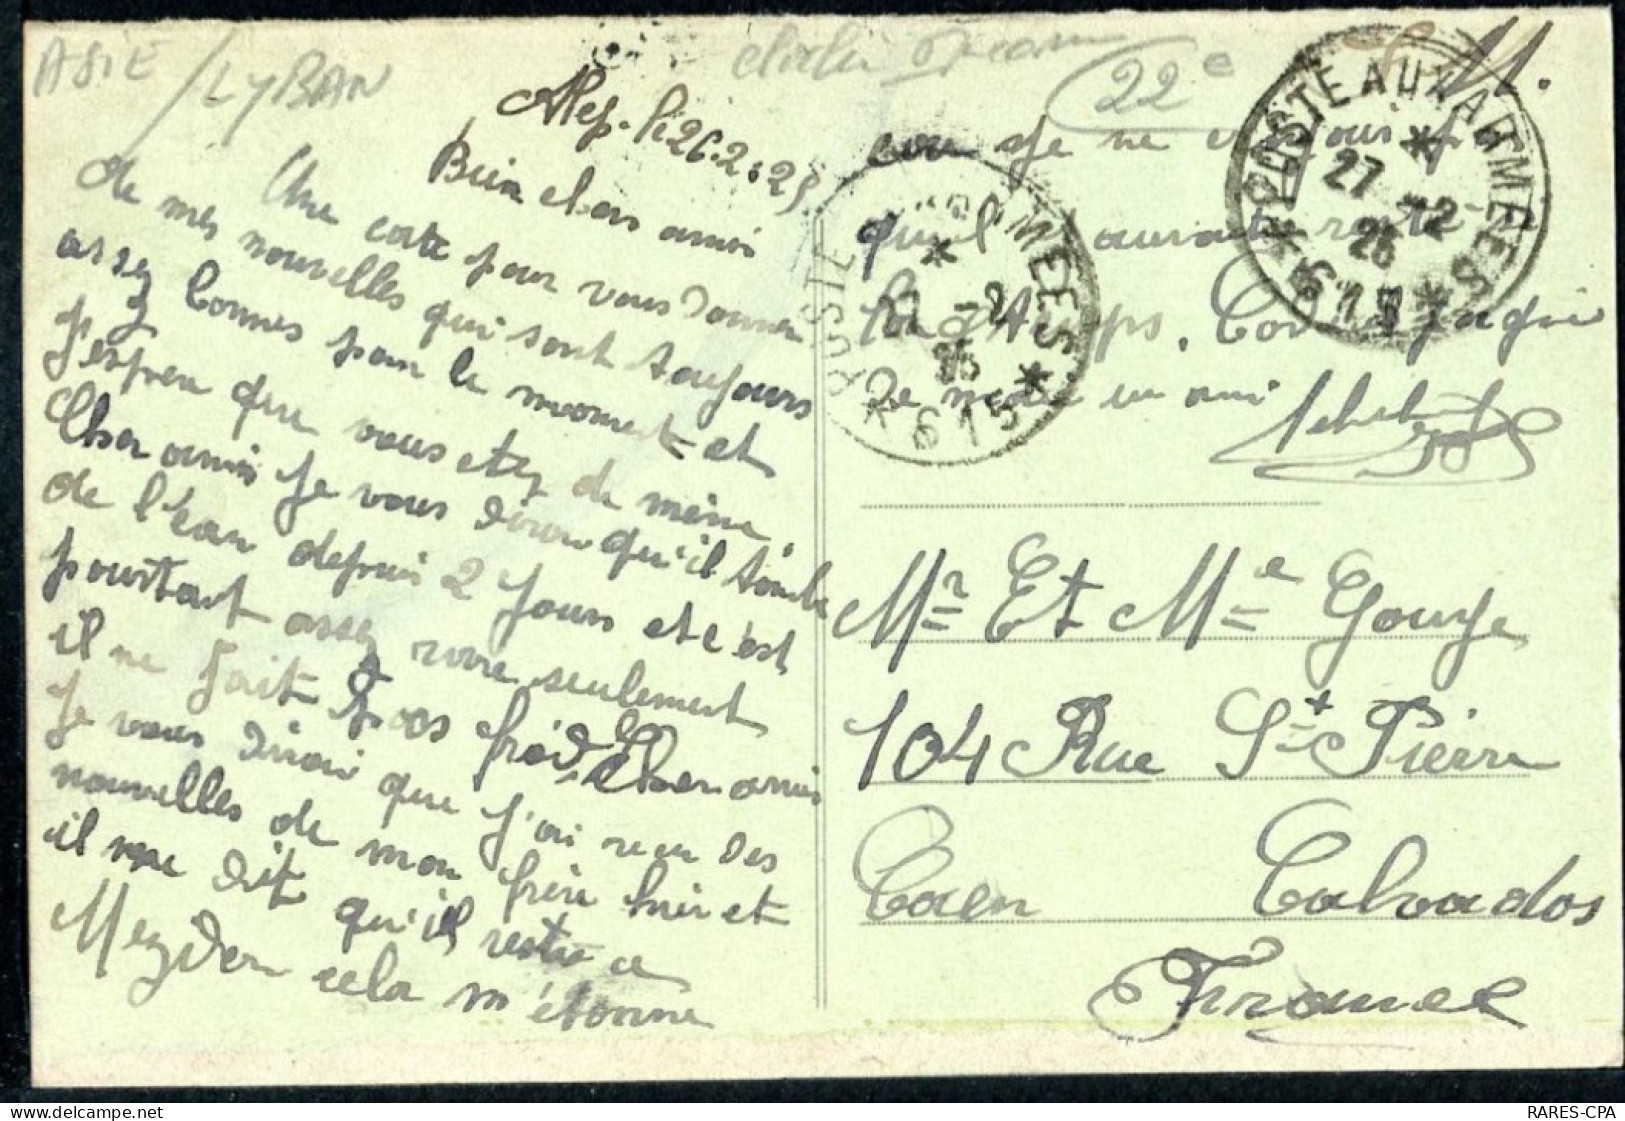 ASIE / LYBAN
22e
M.
Alep. le 26.2.25
Bien cher ami
Une carte pour vous donner
de mes nouvelles qui sont toujours
assez bonnes pour le moment et
j'espere que vous etez de même.
Cher ami je vous dirai qu'il tombe
de l'eau depuis 2 jours et c'est
pourtant assez rare seulement
il ne fait pas froid. Cher ami
je vous dirai que j'ai recu des
nouvelles de mon frère hier et
il me dit qu'il reste a
Mezidon cela m'étonne
car je ne
qu'il aurait resté
Bonne
un ami
POSTE AUX ARMEES
27 -2
25
* 615 *
POSTE ARMEES
27 -2
25
* 615 *
Mr Et Me Gouye
104 Rue St Pierre
Caen Calvados
France
RARES-CPA